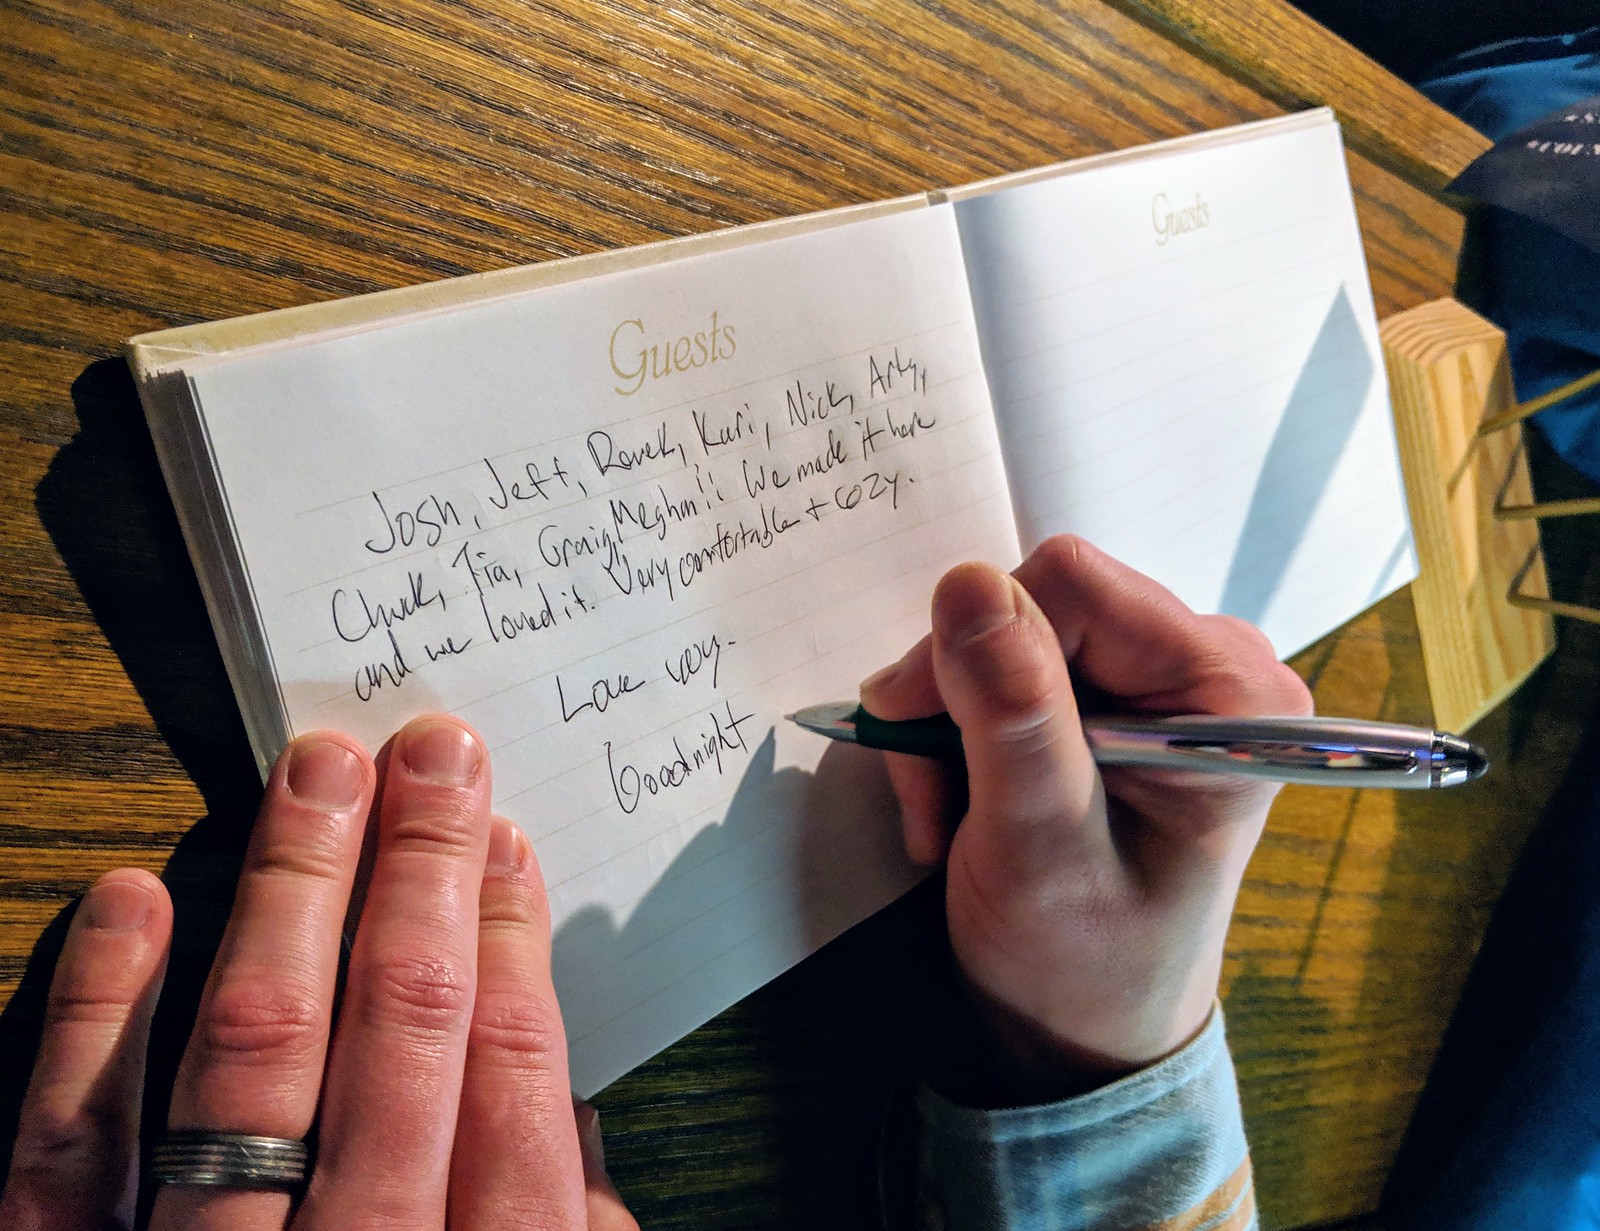 Guests
Josh, Jeff, Derek, Kari, Nick, Arty,
Chuck, Tia, Craig, Meghan!! We made it here
and we loved it. Very comfortable + cozy.
Love
Goodnight
Guests